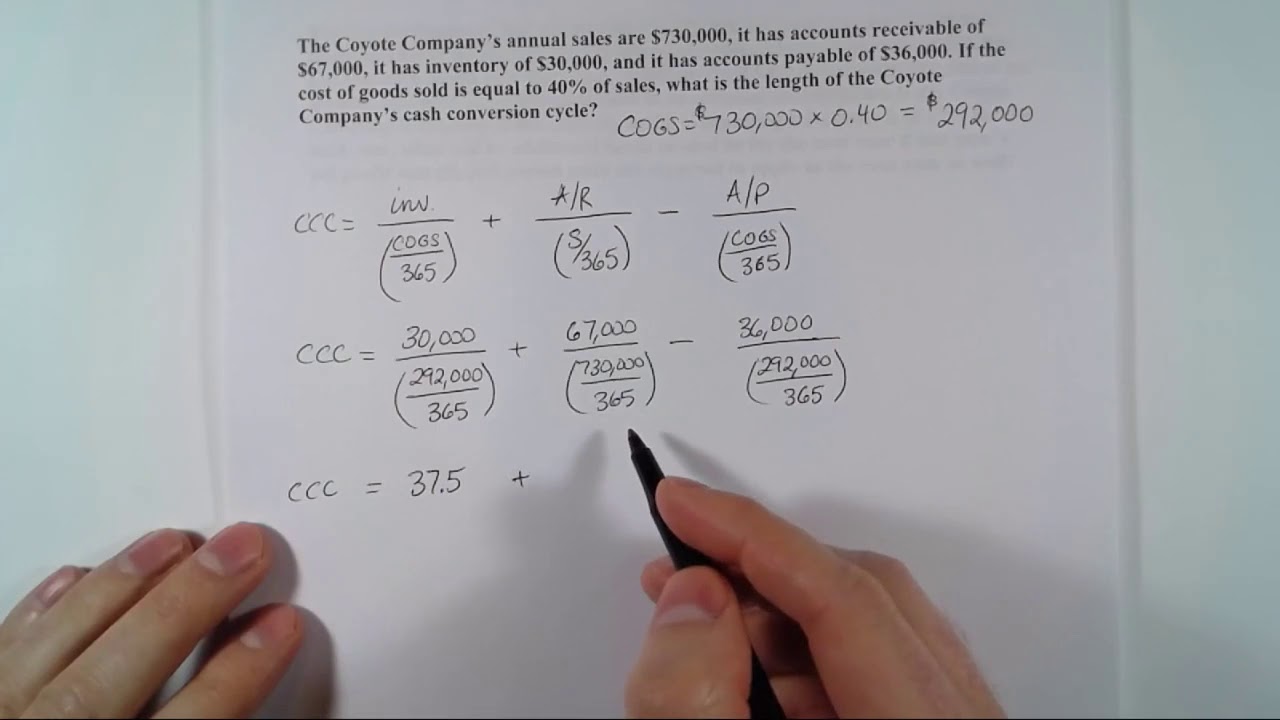 The Coyote Company's annual sales are $730,000, it has accounts receivable of
$67,000, it has inventory of $30,000, and it has accounts payable of $36,000. If the
cost of goods sold is equal to 40% of sales, what is the length of the Coyote
Company's cash conversion cycle?
COGS = $730,000 × 0.40 = $292,000
CCC = inv. / (COGS/365) + A/R / (S/365) − A/P / (COGS/365)
CCC = 30,000 / (292,000/365) + 67,000 / (730,000/365) − 36,000 / (292,000/365)
CCC = 37.5 +